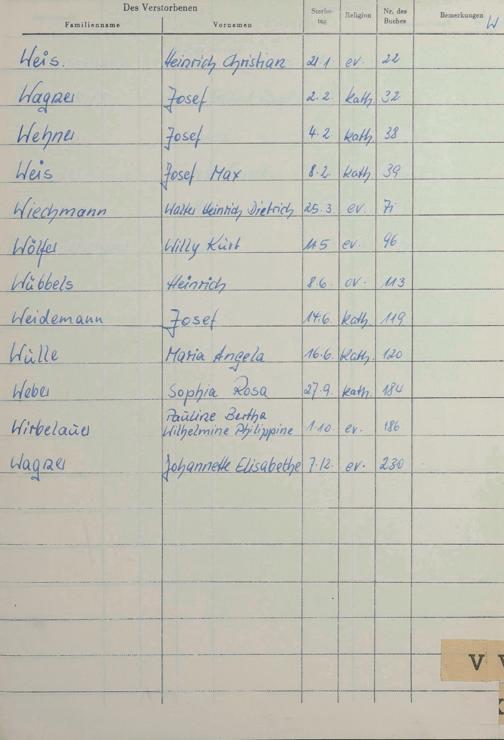 Des Verstorbenen
Familienname Vornamen Sterbe-tag Religion Nr. des Buches Bemerkungen W
Weis. Heinrich Christian 21.1 ev. 22
Wagner Josef 2.2 kath. 32
Wehner Josef 4.2 kath. 38
Weis Josef Max 8.2 kath. 39
Wiechmann Walter Heinrich Dietrich 25.3. ev. 71
Wölfer Willy Kurt 11.5 ev. 96
Wübbels Heinrich 8.6. ev. 113
Weidemann Josef 14.6. kath. 119
Wülle Maria Angela 16.6. kath. 120
Weber Sophia Rosa 27.9. kath. 184
Pauline Bertha
Wirbelauer Wilhelmine Philippine 1.10. ev. 186
Wagner Johannette Elisabethe 7.12. ev. 230
V